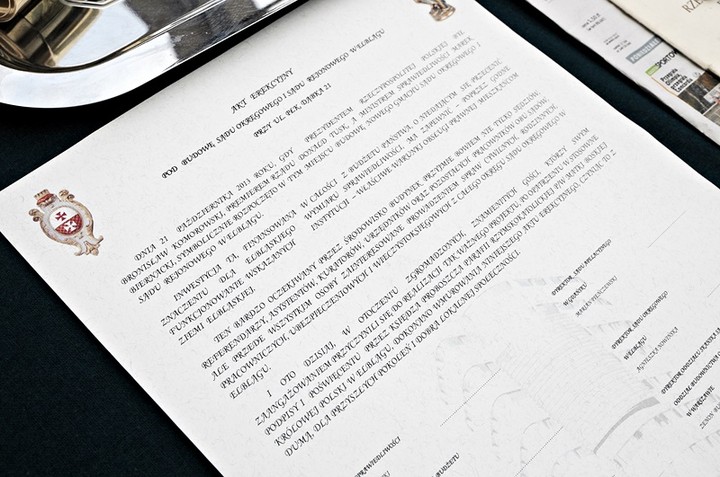 AKT EREKCYJNY
POD BUDOWĘ SĄDU OKRĘGOWEGO I SĄDU REJONOWEGO W ELBLĄGU
PRZY UL. PŁK. DĄBKA 21
DNIA 21 PAŹDZIERNIKA 2013 ROKU, GDY PREZYDENTEM RZECZYPOSPOLITEJ POLSKIEJ BYŁ
BRONISŁAW KOMOROWSKI, PREMIEREM RZĄDU DONALD TUSK, A MINISTREM SPRAWIEDLIWOŚCI MAREK
BIERNACKI, SYMBOLICZNIE ROZPOCZĘTO W TYM MIEJSCU BUDOWĘ NOWEGO GMACHU SĄDU OKRĘGOWEGO I
SĄDU REJONOWEGO W ELBLĄGU.
INWESTYCJA TA, FINANSOWANA W CAŁOŚCI Z BUDŻETU PAŃSTWA, O NIEDAJĄCYM SIĘ PRZECENIĆ
ZNACZENIU DLA ELBLĄSKIEGO WYMIARU SPRAWIEDLIWOŚCI, MA ZAPEWNIĆ – POPRZEZ GODNE
FUNKCJONOWANIE WSKAZANYCH INSTYTUCJI – WŁAŚCIWE WARUNKI OBSŁUGI PRAWNEJ MIESZKAŃCOM
ZIEMI ELBLĄSKIEJ.
TEN BARDZO OCZEKIWANY PRZEZ ŚRODOWISKO BUDYNEK PRZYJMIE BOWIEM NIE TYLKO SĘDZIÓW,
REFERENDARZY, ASYSTENTÓW, KURATORÓW, URZĘDNIKÓW ORAZ POZOSTAŁYCH PRACOWNIKÓW OBU SĄDÓW,
ALE PRZEDE WSZYSTKIM OSOBY ZAINTERESOWANE PROWADZENIEM SPRAW CYWILNYCH, RODZINNYCH,
PRACOWNICZYCH, UBEZPIECZENIOWYCH I WIECZYSTOKSIĘGOWYCH Z CAŁEGO OKRĘGU SĄDU OKRĘGOWEGO W
ELBLĄGU.
I OTO DZISIAJ, W OTOCZENIU ZGROMADZONYCH, ZNAMIENITYCH GOŚCI, KTÓRZY SWYM
ZAANGAŻOWANIEM PRZYCZYNILI SIĘ DO REALIZACJI TAK WAŻNEGO PROJEKTU, PO OPATRZENIU W STOSOWNE
PODPISY I POŚWIĘCENIU PRZEZ KSIĘDZA PROBOSZCZA PARAFII RZYMSKOKATOLICKIEJ P/W MATKI BOSKIEJ
KRÓLOWEJ POLSKI W ELBLĄGU, DOKONANO WMUROWANIA NINIEJSZEGO AKTU EREKCYJNEGO, CZYNIĄC TO Z
DUMĄ, DLA PRZYSZŁYCH POKOLEŃ I DOBRA LOKALNEJ SPOŁECZNOŚCI.
W GDAŃSKU
DYREKTOR SĄDU OKRĘGOWEGO
W ELBLĄGU
AGNIESZKA
W WARSZAWIE